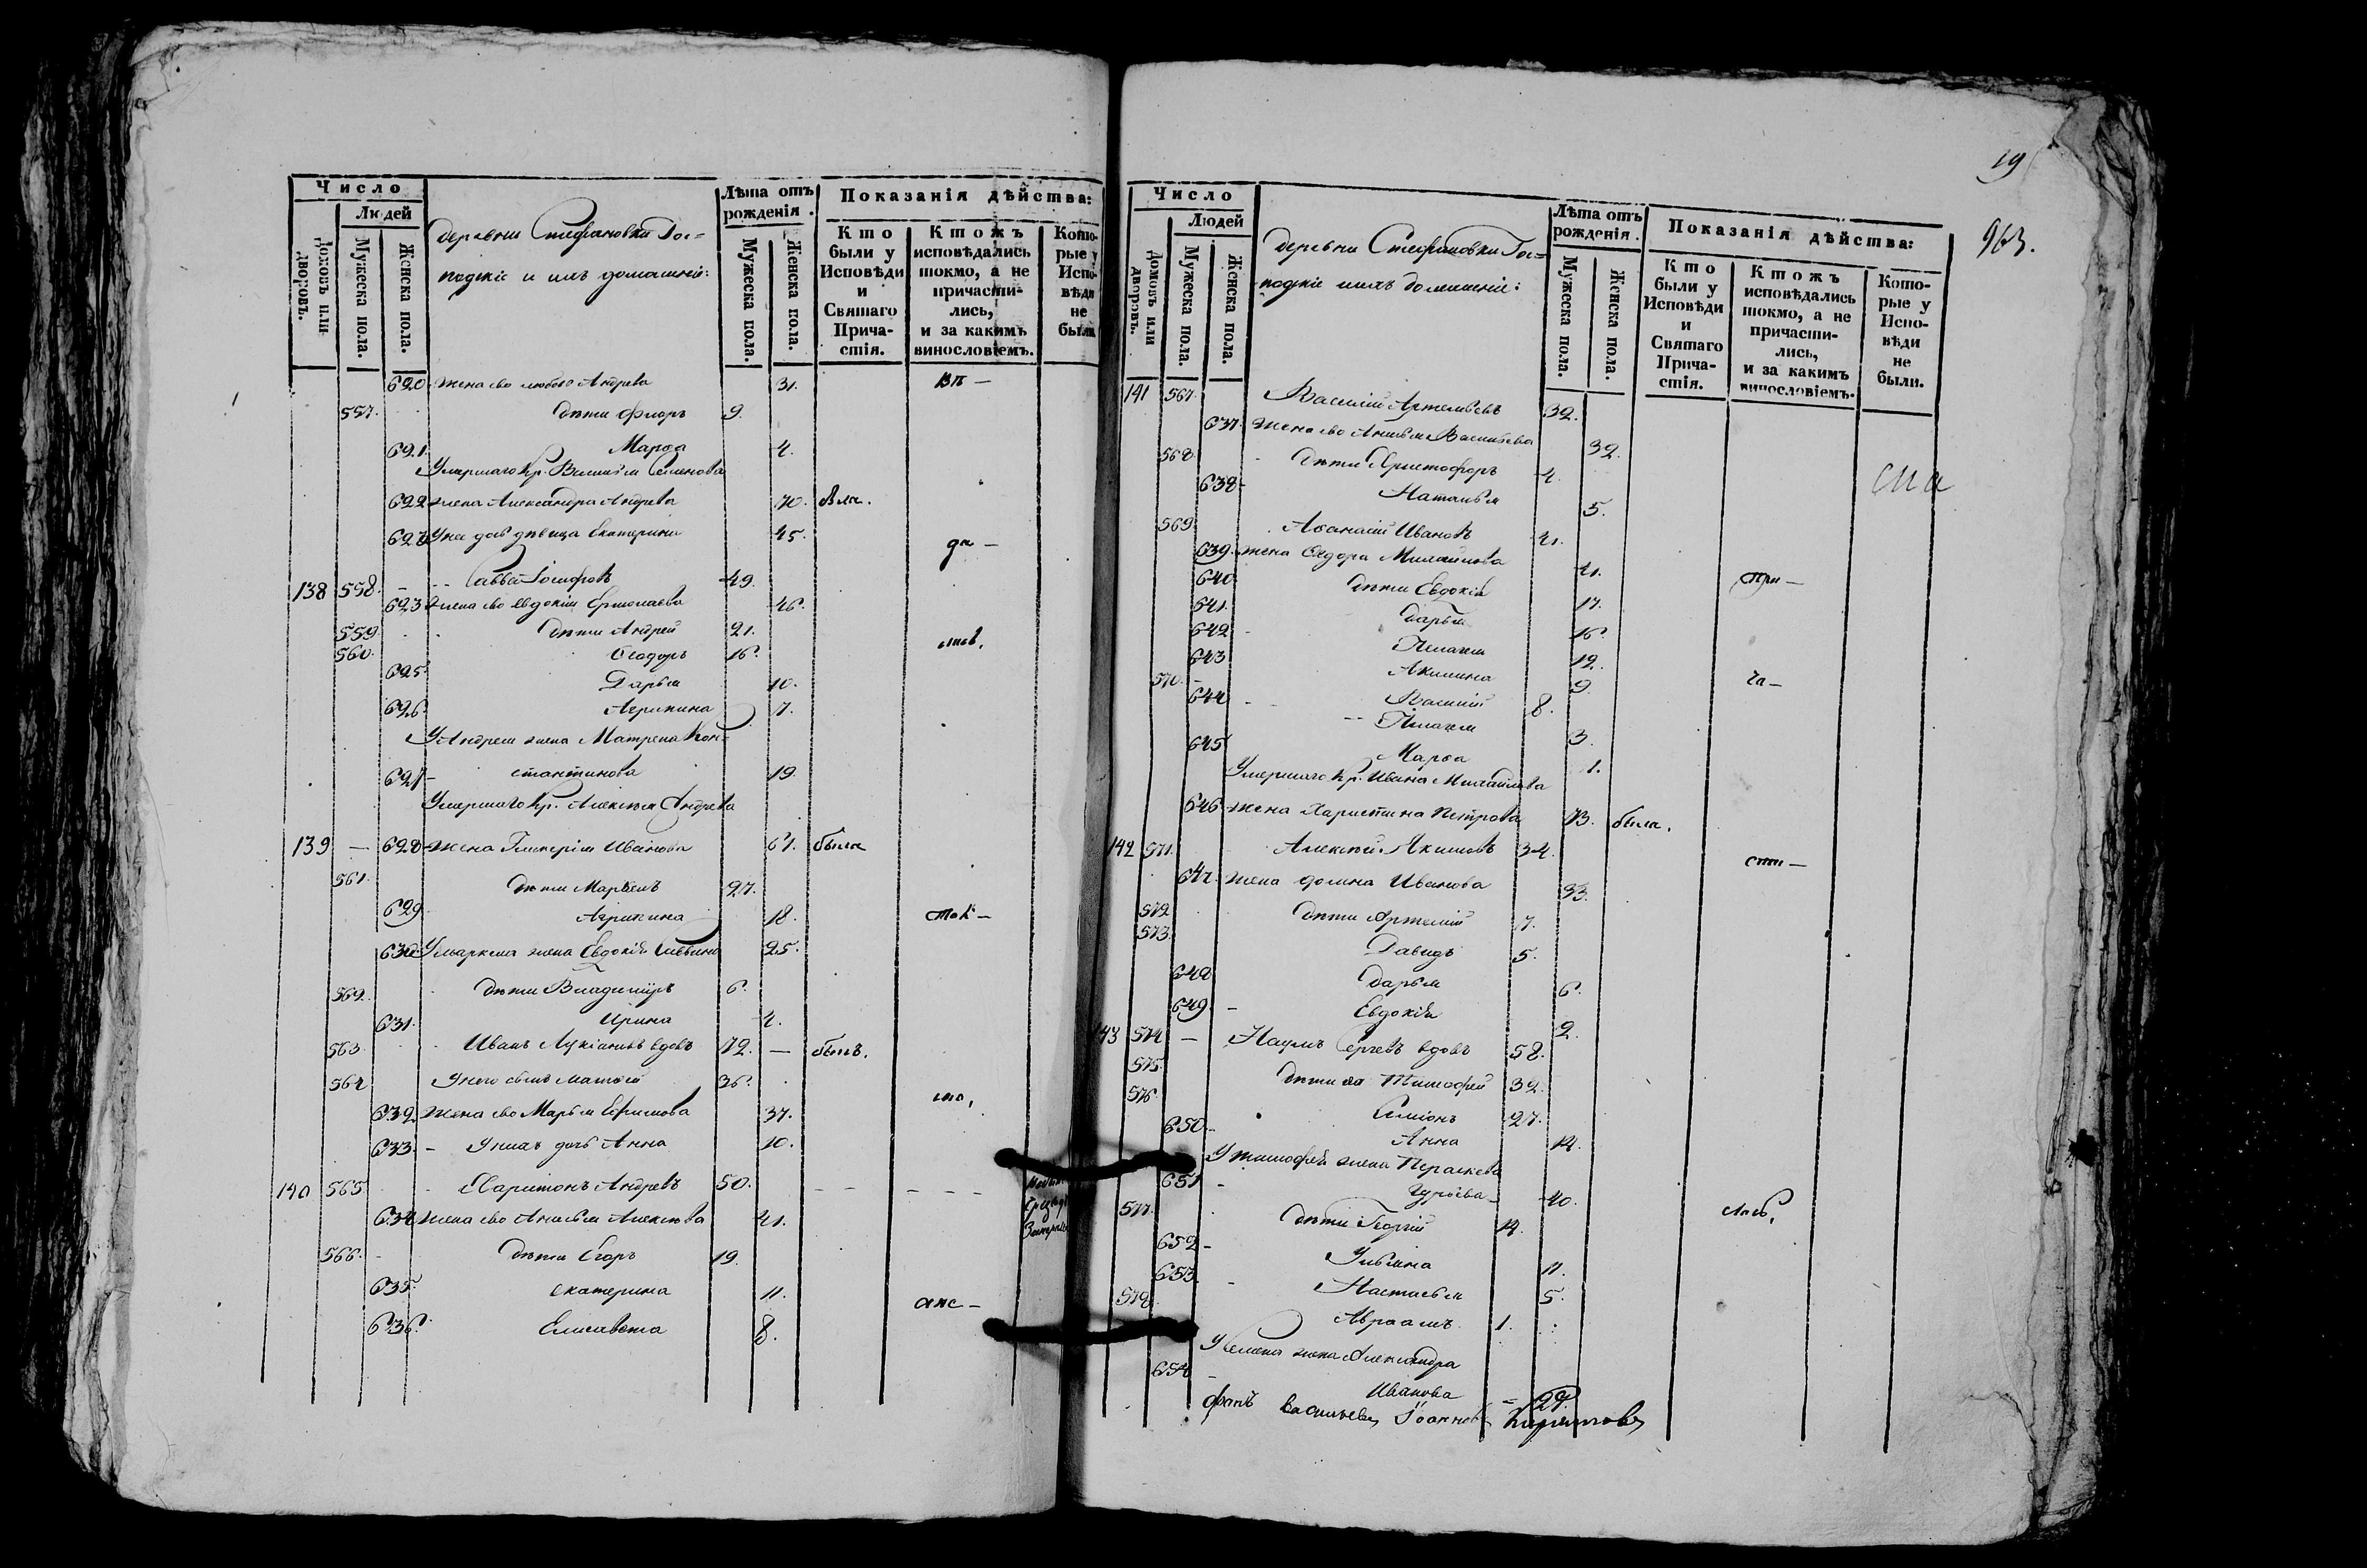 Число
Людей
Домовъ или дворовъ.
Мужеска пола.
Женска пола.
деревни Стефановки Гос=
подскіе и ихъ домашніе:
Лѣта отъ рожденія.
Мужеска пола.
Женска пола.
Показанія дѣйства:
Кто были у Исповѣди и Святаго Причастія.
Кто жъ исповѣдались токмо, а не причастились, и за какимъ винословіемъ.
Которые у Исповѣди не были
620 жена его Андрева 31.
557. дѣти Флоръ 9.
621 Марѳа 4.
Умершаго Кр. Василія Семенова
622 жена Александра Андрева 70.
У нее дочь дѣвица Екатерина 45.
138 558. Савва Іосифовъ 49.
623 жена его Евдокія Ермолаева 46.
559. дѣти Андрей 21.
560. Ѳеодоръ 16.
625. Дарья 10.
626. Агрипина 7.
У Андрея жена Матрена Кон=
627 стантинова 19.
Умершаго Кр. Алексѣя Андрева
139 — 628 жена Гликерія Иванова 67. была
561. дѣти Маркелъ 27.
629 Агрипина 18.
630 У Маркела жена Евдокія Саввина 25.
562. дѣти Владиміръ 6.
631. Ирина 4.
563. Иванъ Лукіановъ вдовъ 72. — былъ.
564 У него сынъ Матѳей 36.
632 жена его Марья Ефимова 37.
633. — У нихъ дочь Анна 10.
140 565 Харитонъ Андревъ 50.
634 жена его Анисья Алексѣева 41.
566. дѣти Егоръ 19.
635. Екатерина 11.
636. Елисавета 8.
19
963.
Число
Людей
Домовъ или дворовъ.
Мужеска пола.
Женска пола.
деревни Стефановки Гос=
подскіе и ихъ домашніе:
Лѣта отъ рожденія.
Мужеска пола.
Женска пола.
Показанія дѣйства:
Кто были у Исповѣди и Святаго Причастія.
Кто жъ исповѣдались токмо, а не причастились, и за какимъ винословіемъ.
Которые у Исповѣди не были.
141 567. Василій Артемьевъ 32.
637. жена его Анисья Васильева 32.
568. дѣти Христофоръ 4.
638 Наталья 5.
569. Аѳанасій Ивановъ 41.
639. жена Ѳедора Михайлова 41.
640 дѣти Евдокія 17.
641. Дарья 16.
642 Пелагея 12.
643 Акилина 9.
570. Василій 8.
644 Пелагея 3.
645 Марѳа 1.
Умершаго Кр. Ивана Михайлова
646. жена Харистина Петрова 73. была.
142 571. Алексѣй Якимовъ 34.
647. жена Домна Иванова 33.
572. дѣти Артемій 7.
573. Давидъ 5.
648 Дарья 6.
649. Евдокія 2.
143 574 — Наумъ Сергевъ вдовъ 58.
575. дѣти его Тимофей 32.
576. Симіонъ 27.
650 Анна 14.
У Тимофея жена Пераскева
651 Гурьева 40.
577. дѣти Георгій 14.
652 Ульяна 11.
653. Настасья 5.
578. Авраамъ 1.
У Семена жена Александра
654 Иванова
Васильевъ Іоаннъ